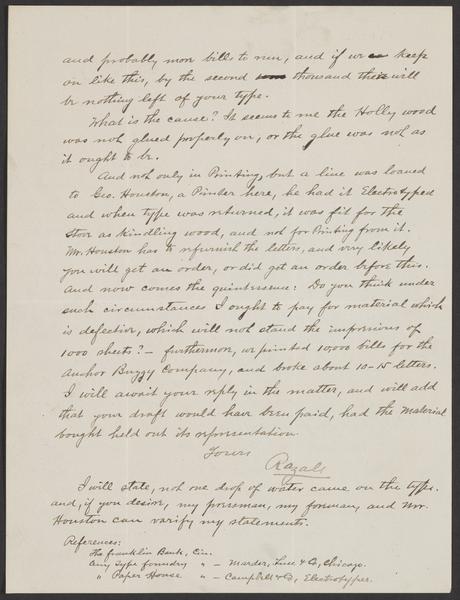 and probably more bills to run, and if we keep
on like this, by the second thousand there will
be nothing left of your type.
What is the cause? It seems to me the Holly wood
was not glued properly on, or the glue was not as
it ought to be.
And not only in Printing, but a line was loaned
to Geo. Houston, a Printer here, he had it Electrotyped
and when type was returned, it was fit for the
stove as kindling wood, and not for Printing from it.
Mr. Houston has to refurnish the letters, and very likely
you will get an order, or did get an order before this.
And now comes the quintessence: Do you think under
such circumstances I ought to pay for material which
is defective, which will not stand the impressions of
1000 sheets? - furthermore, we printed 10,000 bills for the
Anchor Buggy Company, and broke about 10-15 letters.
I will await your reply in the matter, and will add
that your draft would have been paid, had the material
bought held out its representation.
Yours
Razall
I will state, not one drop of water came on the type.
and, if you desire, my pressman, my foreman, and Mr.
Houston can varify my statements.
References:
The Franklin Bank, Cin.
Any Type foundry " - Marder, Luse & Co, Chicago.
" Paper House " - Campbell & Co, Electrotyper.